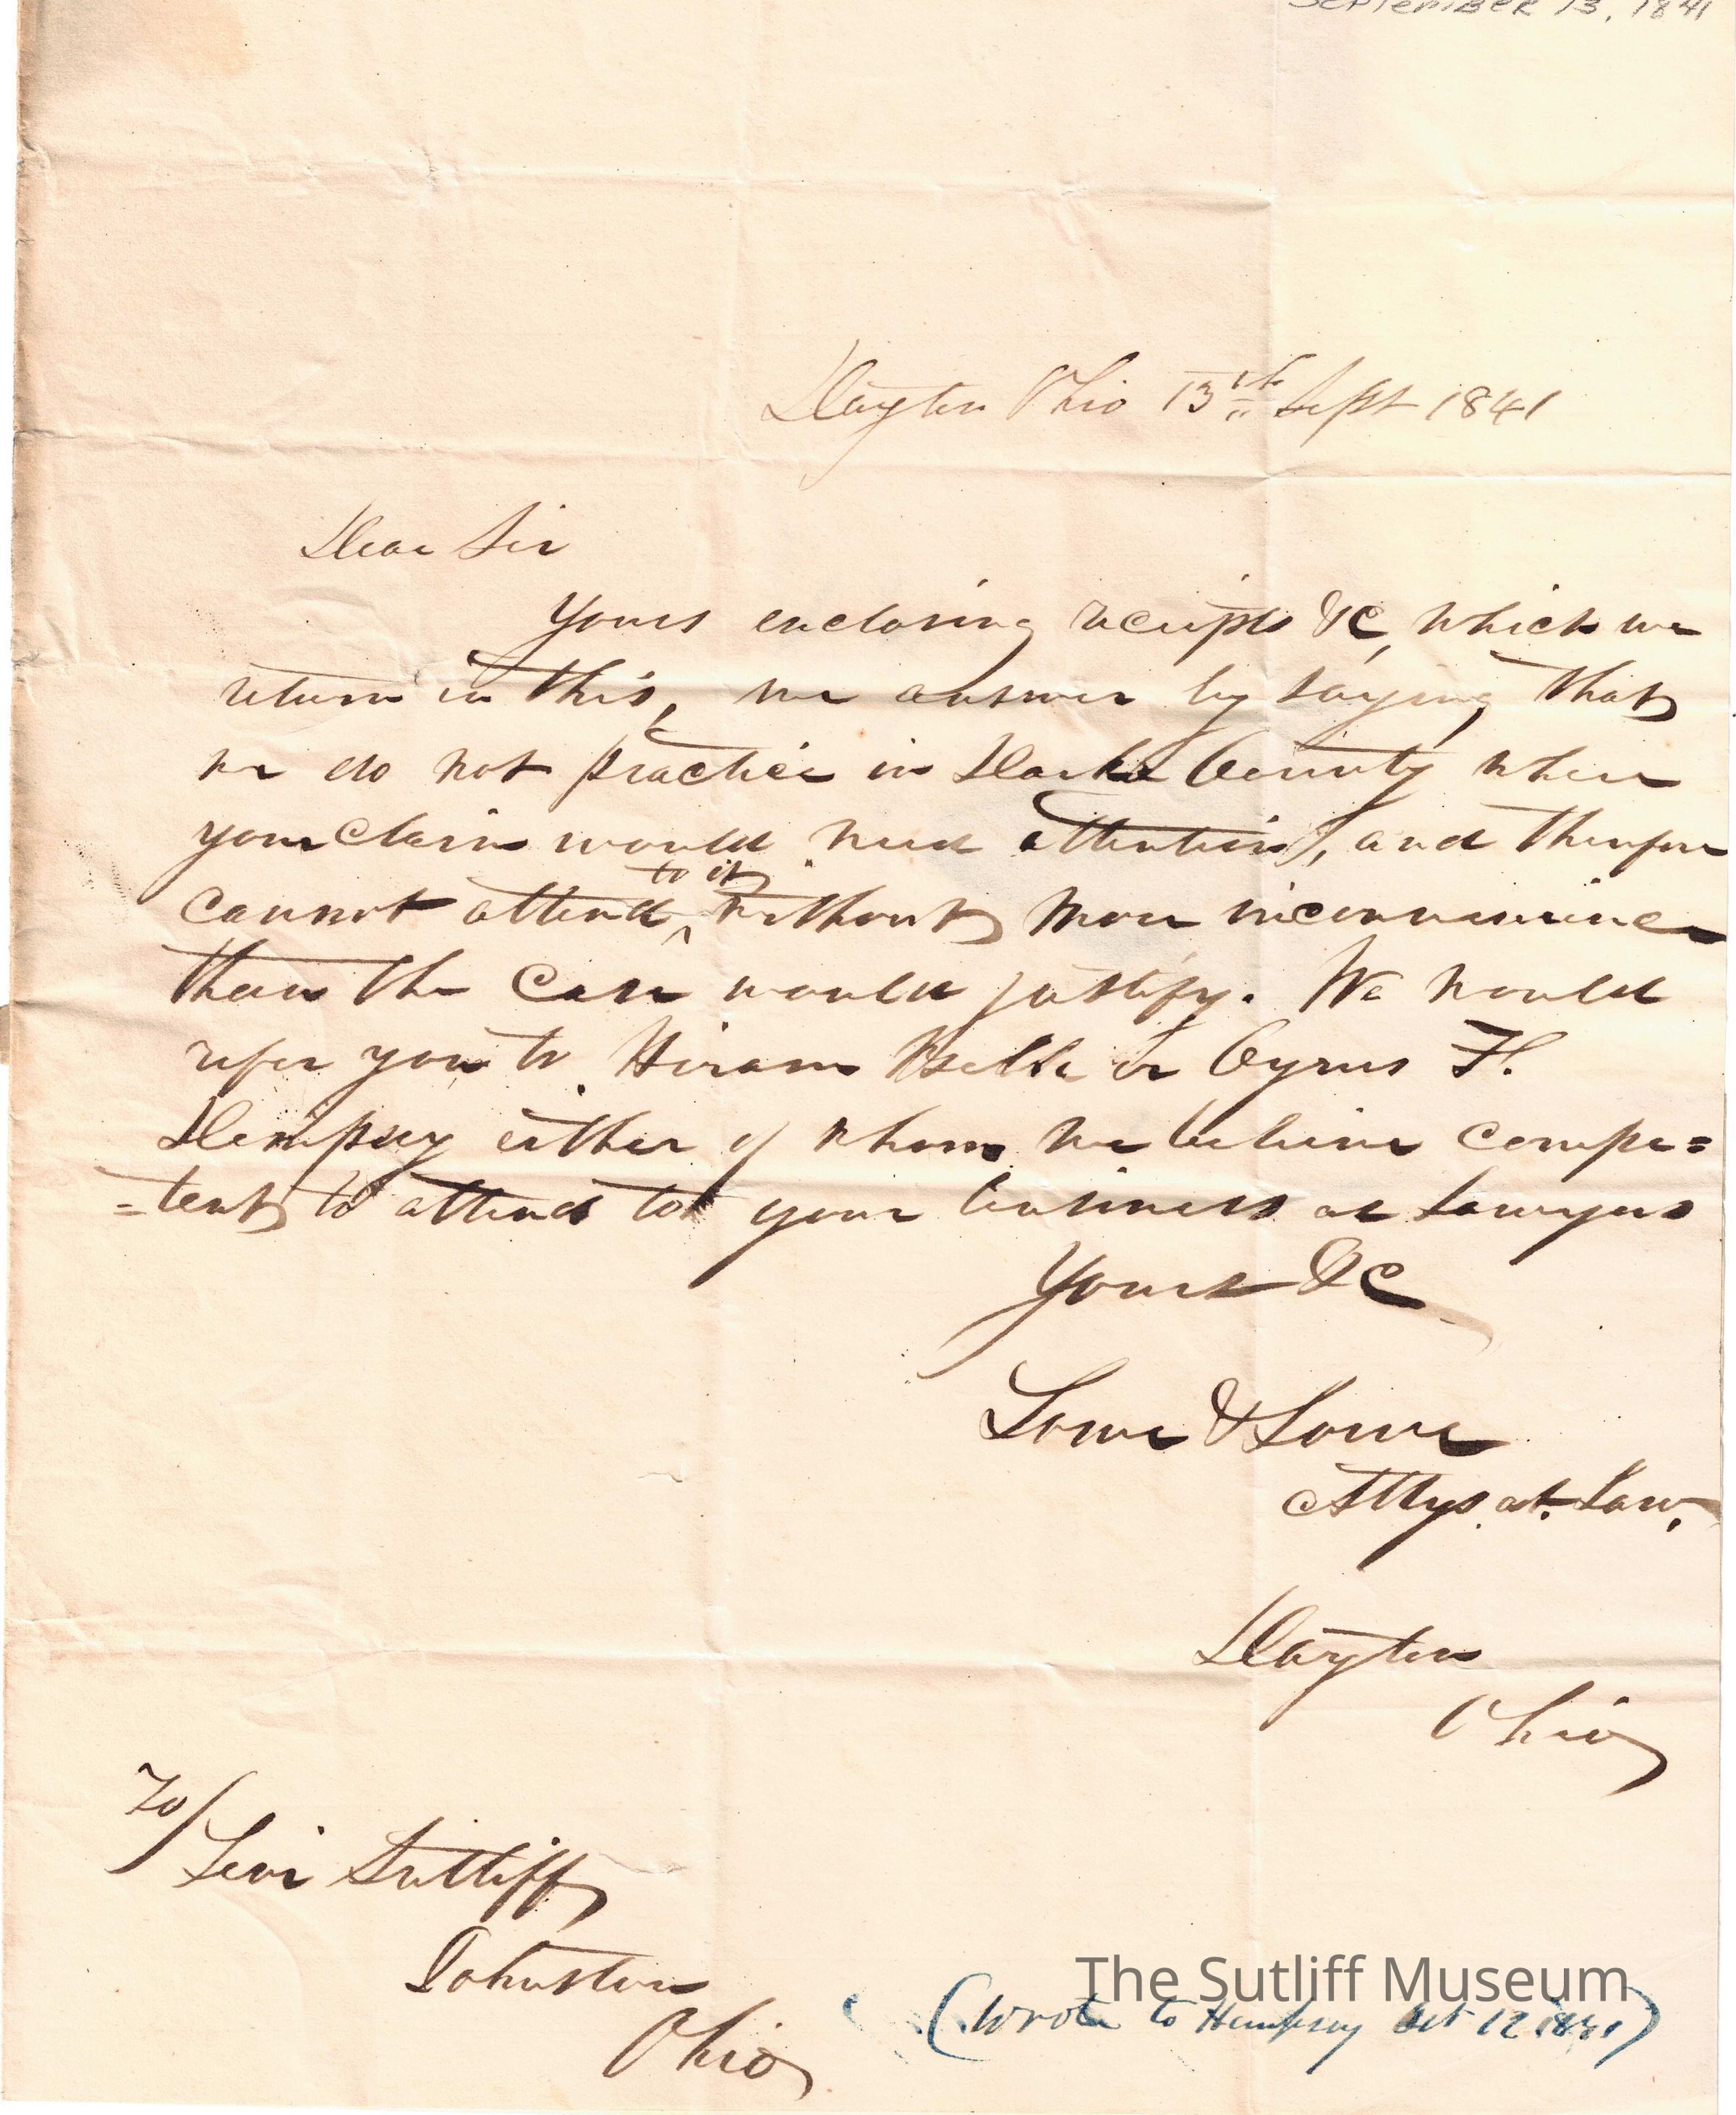 September 13, 1841
Dayton Ohio 13th Sept 1841
Dear Sir
Yours enclosing receipts &c, which we
return in this, we answer by saying, that
we do not practice in Darke County where
your claim would need attention, and therefore
to it
cannot attend ^ without more inconvenience
than the case would justify. We would
refer you to Hiram Bell or Cyrus F.
Dempsey either of whom we believe compe=
=tent to attend to your business as Lawyers
Yours &c
Lowe & Lowe
Attys. at. Law.
Dayton
Ohio
To/
Levi Sutliff
Johnston
Ohio
The Sutliff Museum
(Wrote to Hempsey Oct 12 1841)